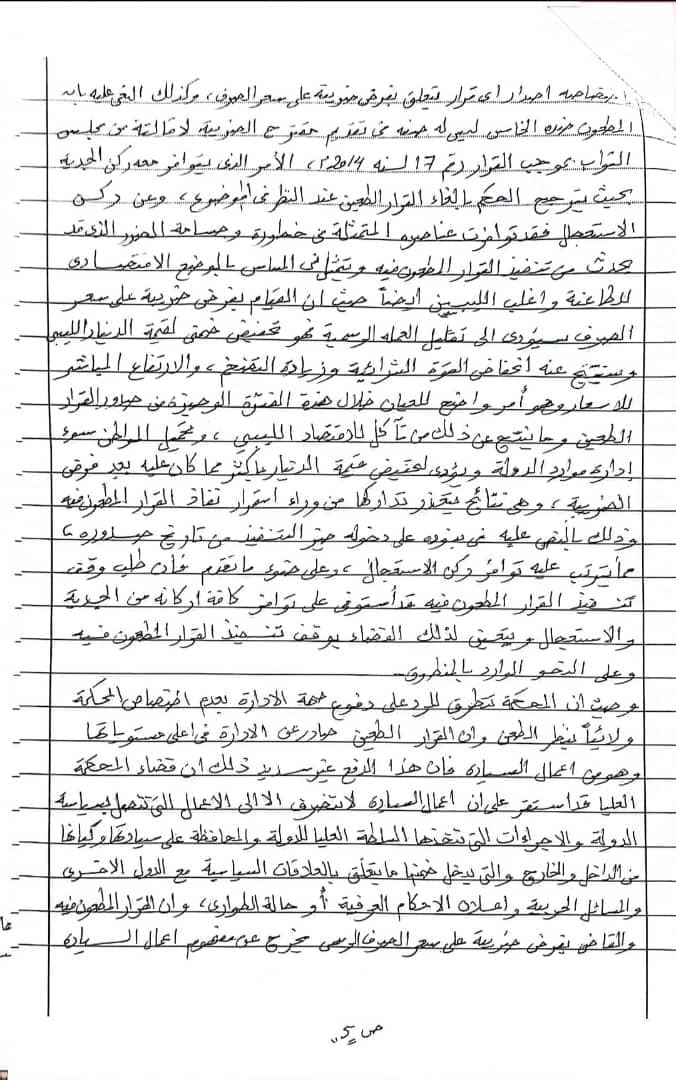 اختصاصه اصدار اى قرار يتعلق بفرض ضريبة على سعر الصرف، وكذلك النعي عليه بان
المطعون ضده الخامس ليس له صفه فى تقديم مقترح الضريبة لاقالته من مجلس
النواب بموجب القرار رقم 17 لسنه 2014م، الأمر الذى يتوافر معه ركن الجدية
بحيث يترجح الحكم بالغاء القرار الطعين عند النظر فى الموضوع، وعن ركن
الاستعجال فقد توافرت عناصره المتمثلة فى خطورة وجسامة الضرر الذى قد
يحدث من تنفيذ القرار المطعون فيه ويتمثل فى المساس بالوضع الاقتصادى
للطاعنة واغلب الليبيين أيضاً حيث ان القيام بفرض ضريبة على سعر
الصرف سيؤدى الى تقليل العمله الرسمية فهو تخفيض ضمنى لقيمة الدينار الليبي
وستنتج عنه انخفاض القوة الشرائية وزيادة التضخم، والارتفاع المباشر
للاسعار وهو أمر واضح للعيان خلال هذة الفترة الوجيزة من صدور القرار
الطعين وما ينتج عن ذلك من تآكل للاقتصاد الليبي، وتحميل المواطن سوء
إدارة موارد الدولة ويؤدى لتخفيض قيمة الدينار باكثر مما كان عليه بعد فرض
الضريبة، وهى نتائج يتعذر تداركها من وراء استمرار نفاذ القرار المطعون فيه
وذلك بالنص عليه فى بنوده على دخوله حيز التنفيذ من تاريخ صدوره
مما يترتب عليه توافر ركن الاستعجال، وعلى ضوء ما تقدم فان طلب وقف
تنفيذ القرار المطعون فيه قد استوفى على توافر كافة اركانه من الجدية
والاستعجال ويتعين لذلك القضاء بوقف تنفيذ القرار المطعون فيه
وعلى النحو الوارد بالمنطوق.
وحيث ان المحكمة تتطرق للرد على دفوع جهة الادارة بعدم اختصاص المحكمة
ولائياً بنظر الطعن وان القرار الطعين صادر عن الادارة فى اعلى مستوياتها
وهو من اعمال السيادة فان هذا الدفع غير سديد ذلك ان قضاء المحكمة
العليا قد استقر على ان اعمال السيادة لا تنصرف الا الى الاعمال التى تتصل بسياسة
الدولة والاجراءات التى تتخذها السلطة العليا للدولة والمحافظة على سيادتها وكيانها
من الداخل والخارج والتى يدخل ضمنها ما يتعلق بالعلاقات السياسية مع الدول الاخرى
والمسائل الحربية واعلان الاحكام العرفية أو حالة الطوارئ، وان القرار المطعون فيه
والقاضى بفرض ضريبة على سعر الصرف الرسمى يخرج عن مفهوم اعمال السيادة
ص 5